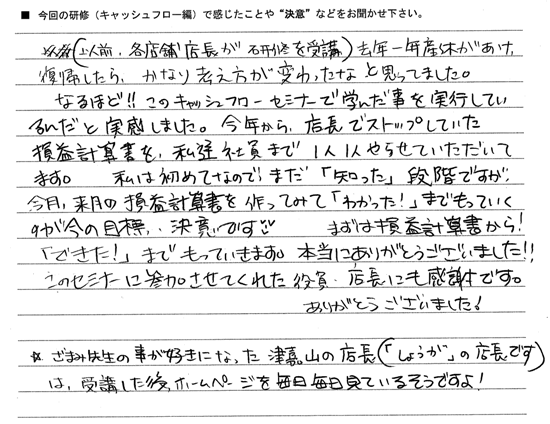 ■ 今回の研修（キャッシュフロー編）で感じたことや“決意”などをお聞かせ下さい。
(以前、各店舗店長が研修を受講) 去年一年産休があけ、
復帰したら、かなり考え方が変わったなと思ってました。
なるほど!!このキャッシュフローセミナーで学んだ事を実行してい
るんだと実感しました。今年から、店長でストップしていた
損益計算書を、私達社員まで1人1人やらせていただいて
ます。 私は初めてなので、まだ「知った」段階ですが、
今月、来月の損益計算書を作ってみて「わかった！」までもっていく
のが今の目標、決意です♡ まずは損益計算書から！
「できた！」までもっていきます。本当にありがとうございました!!
このセミナーに参加させてくれた役員、店長にも感謝です。
ありがとうございました！
☆ ごまみ先生の事が好きになった津嘉山の店長(「しょうが」の店長です)
は、受講した後、ホームページを毎日毎日見ているそうですよ！